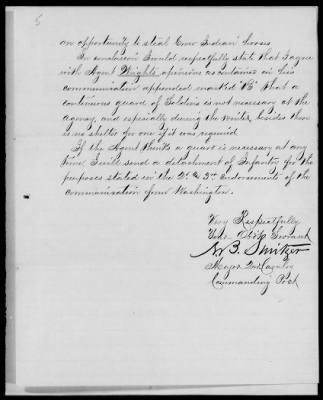 5
an opportunity to steal Crow Indian horses
In conclusion I would respectfully state that I agree
with Agent Wright's opinion as contained in his
communication appended marked "B" that a
continuous guard of Soldiers is not necessary at the
Agency, and especially during the Winter, besides there
is no shelter for one if it was required
If the Agent thinks a guard is necessary at any
time I will send a detachment of Infantry for the
purposes stated in the 2d & 3rd Endorsements of the
Communication from Washington.
Very Respectfully
Your Obt Servant
B. Switzer
Major 2nd Cavalry
Commanding Post